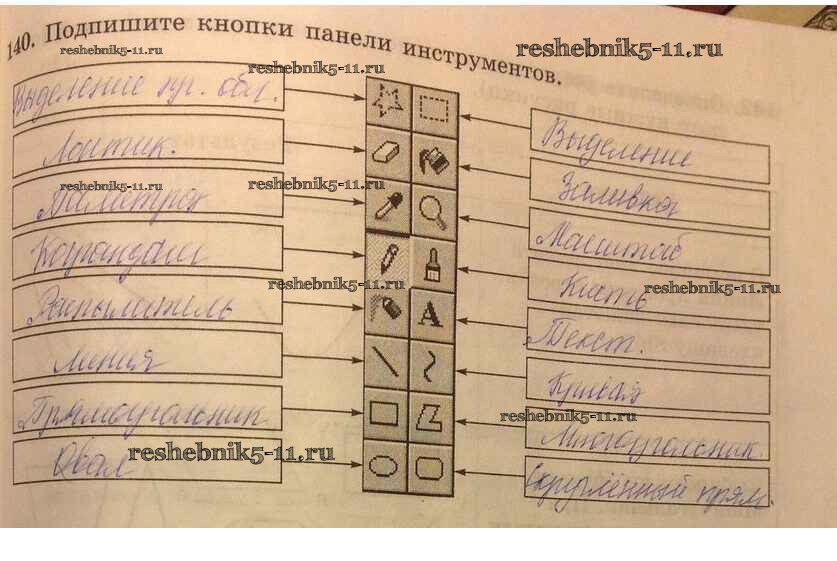 140. Подпишите кнопки панели инструментов.
reshebnik5-11.ru
reshebnik5-11.ru
reshebnik5-11.ru
Выделение пр. обл.
Выделение
Ластик.
Заливка
reshebnik5-11.ru
reshebnik5-11.ru
Палитра
Масштаб
Карандаш
Кисть
reshebnik5-11.ru
reshebnik5-11.ru
Распылитель
A
Текст.
Линия
Кривая
Прямоугольник
reshebnik5-11.ru
Многоугольник
reshebnik5-11.ru
Овал
Скруглённый прям.